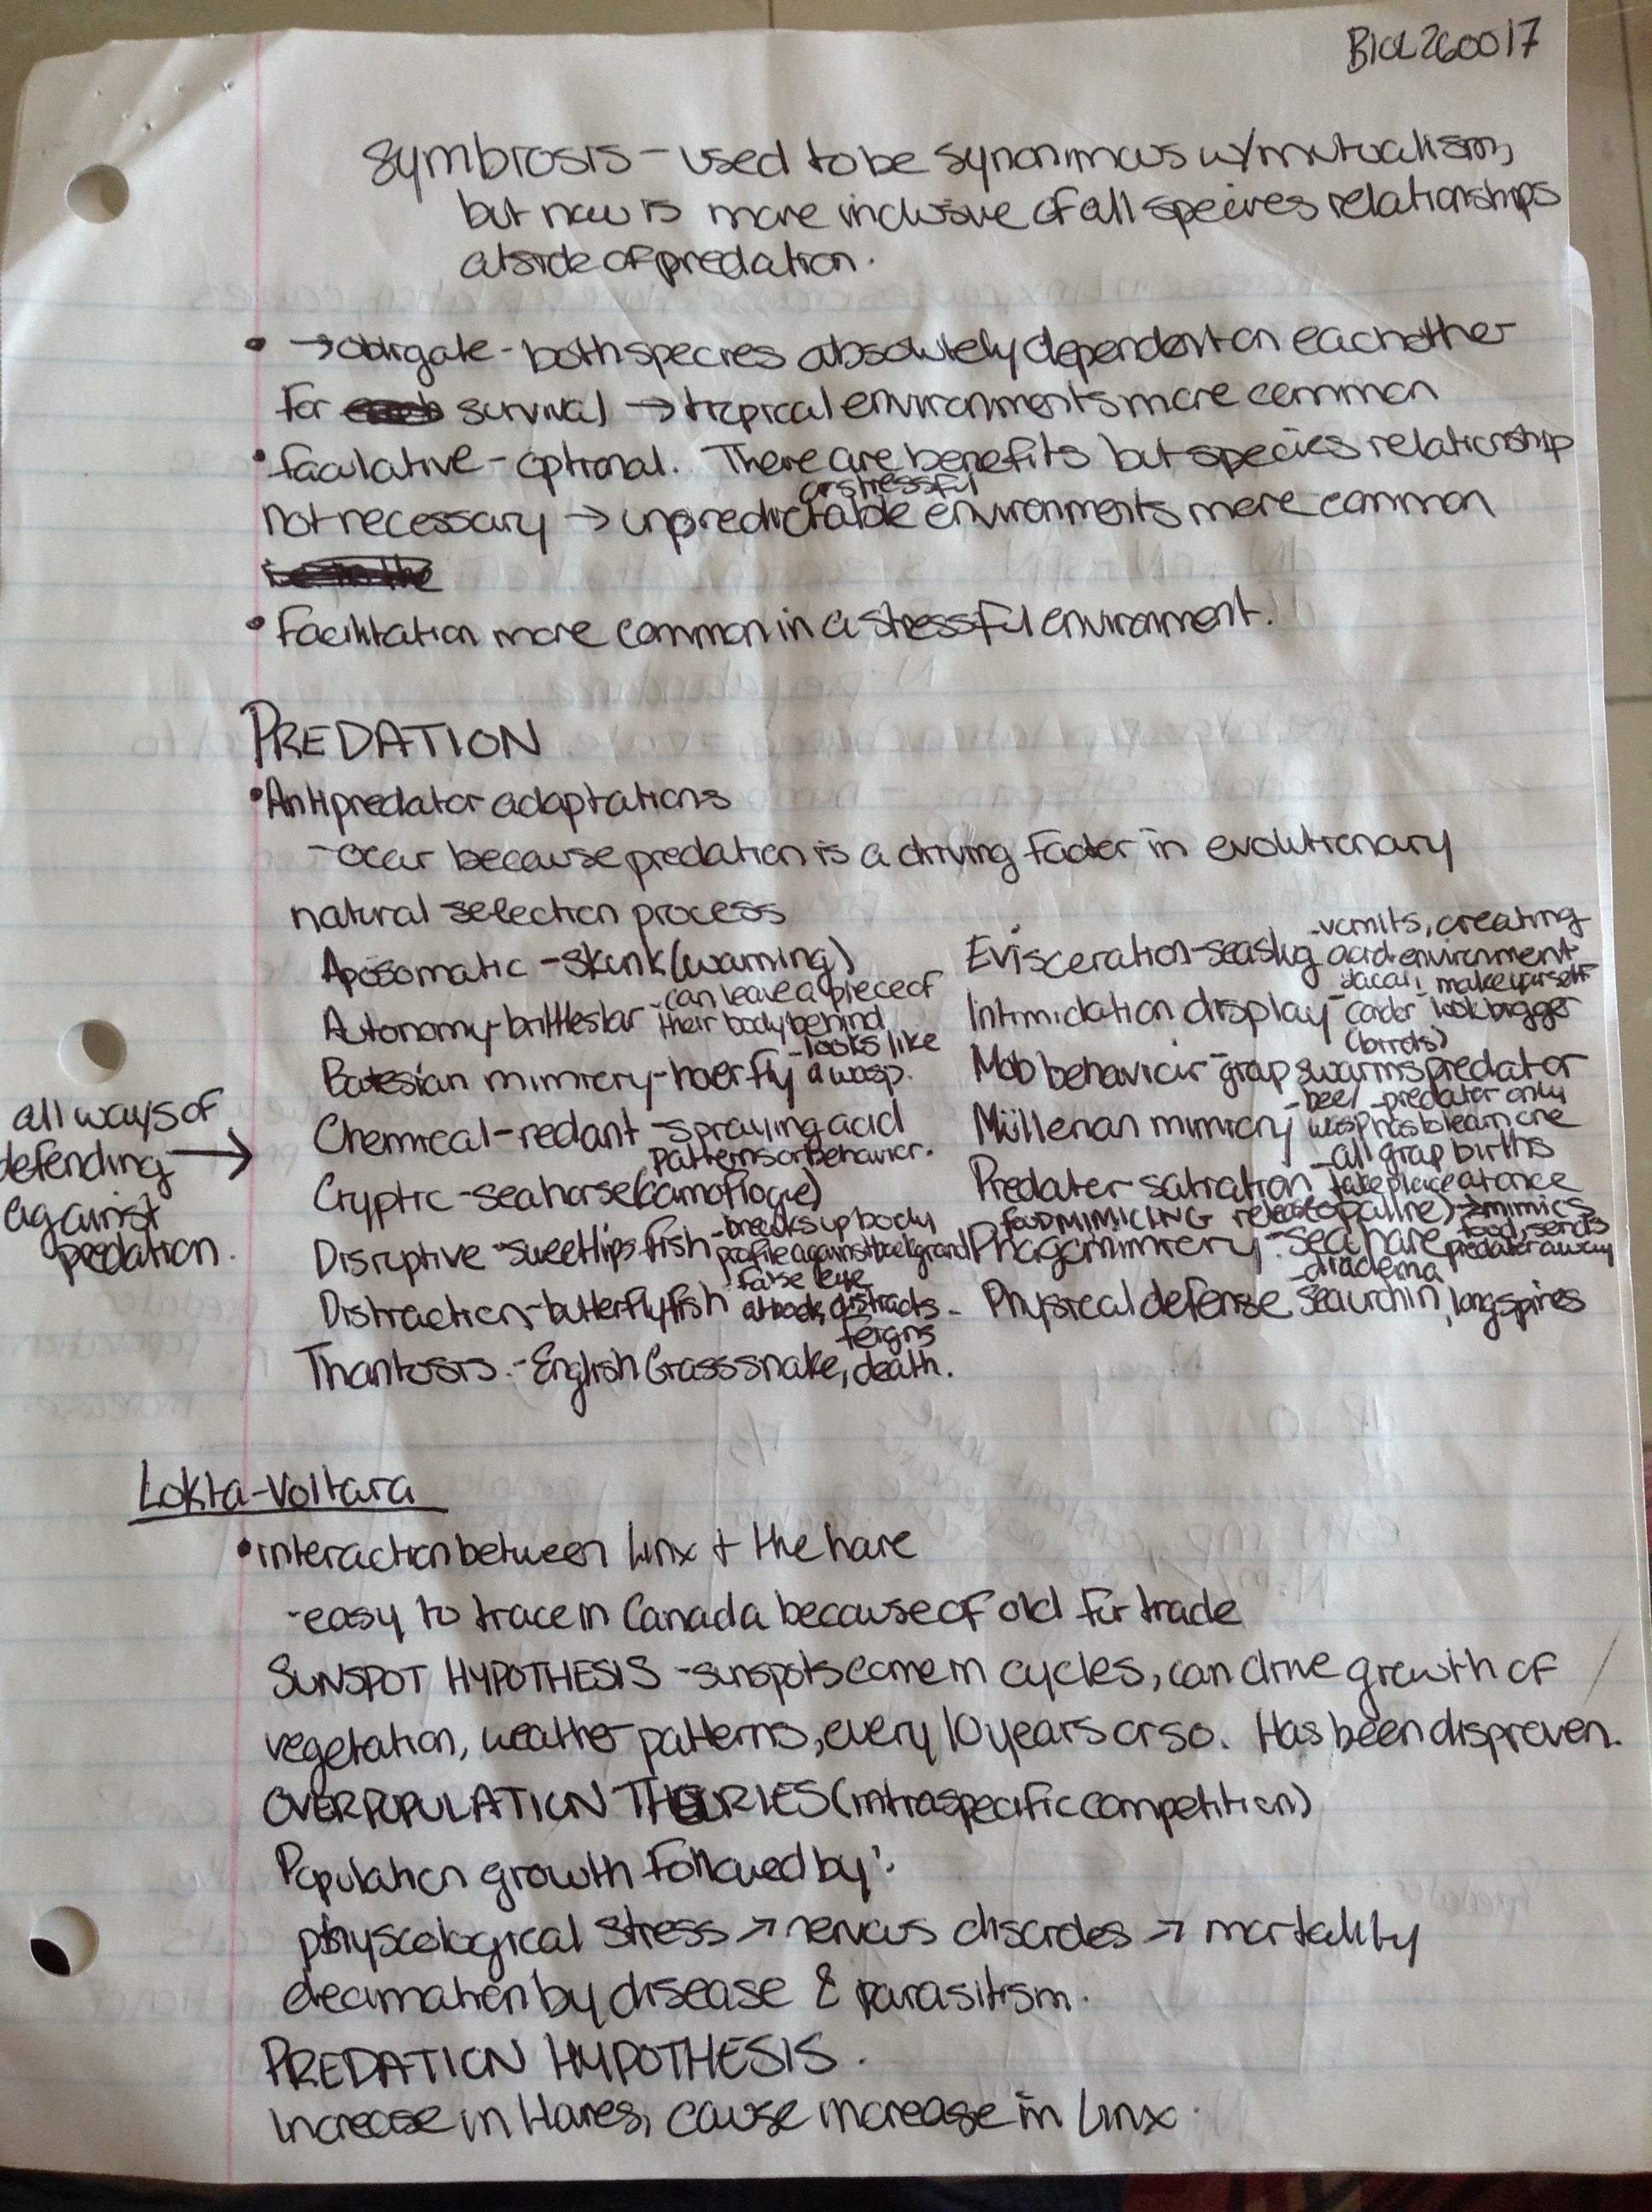 BIOL260017
Symbiosis - used to be synonimous w/mutualism,
but now is more inclusive of all species relationships
outside of predation.
• → obligate - both species absolutely dependent on eachother
for survival → tropical environments more common
• faculative - optional. There are benefits but species relationship
or stressful
not necessary → unpredictable environments more common
• Facilitation more common in a stressful environment.
PREDATION
• Antipredator adaptations
- occur because predation is a driving factor in evolutionary
natural selection process
Aposomatic - skunk (warning)
Autonomy - brittlestar - can leave a piece of
their body behind
Batesian mimicry - hoverfly - looks like
a wasp.
all ways of
defending →
against
predation.
Chemical - red ant - spraying acid
patterns or behavior.
Cryptic - seahorse (camoflogie)
Disruptive - sweetlips fish - breaks up body
profile against background
Distraction - butterflyfish - false eye
at back, distracts
Thantosis - English Grass snake, feigns
death.
Evisceration - seaslug - vomits, creating
acid environment
Intimidation display - make yourself
look bigger
(birds)
Mob behavior - group swarms predator
Müllerian mimicry - bee/ wasp - predator only
has to learn one
Predator satration - all group births
take place at once
FOOD MIMICING
Phagomimicry - sea hare → mimics
food, sends
predator away
Physical defense - diadema
sea urchin, long spines
Lokta-Voltara
• interaction between linx + the hare
- easy to trace in Canada because of old fur trade
SUNSPOT HYPOTHESIS - sunspots come in cycles, can drive growth of
vegetation, weather patterns, every 10 years or so. Has been disproven.
OVERPOPULATION THEORIES (intraspecific competition)
Population growth followed by:
physcological stress → nervous disordes → mortality
decimation by disease & parasitism.
PREDATION HYPOTHESIS.
Increase in Hares, cause increase in linx.